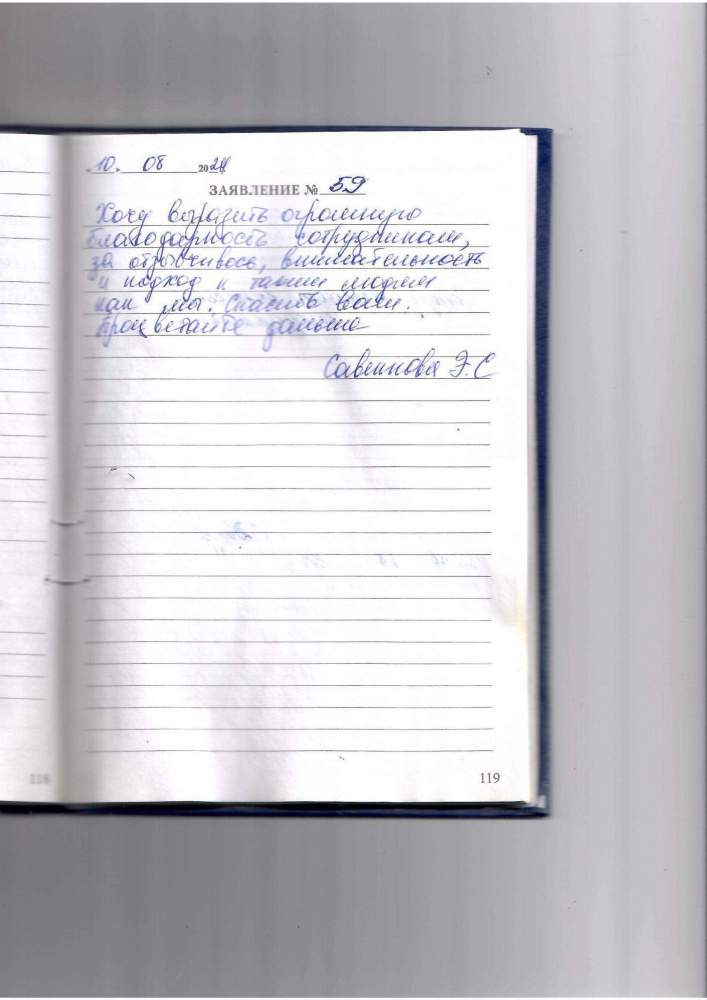 10. 08 2024
ЗАЯВЛЕНИЕ № 59
Хочу выразить огромную
благодарность сотрудникам,
за отзывчивось, внимательность
и подход к таким людям
как мы. Спасибо Вам.
Процветайте дальше
Савенкова Э.С
118
119